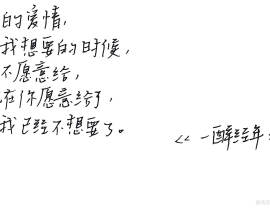 的爱情，
我想要的时候，
不愿意给，
在你愿意给了，
我已经不想要了。
《一醉经年